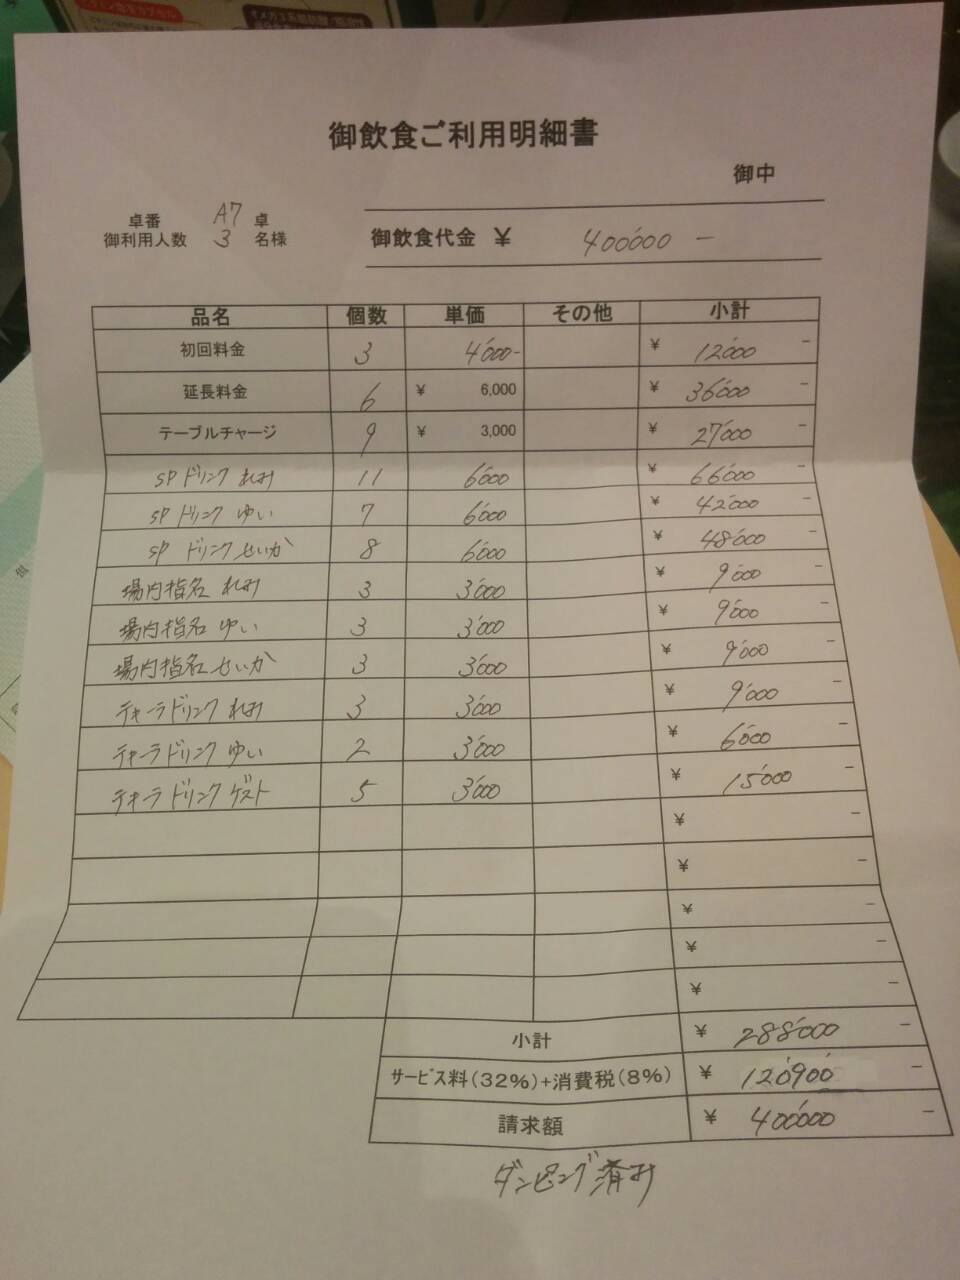 御飲食ご利用明細書
御中
卓番 A7 卓
御利用人数 3 名様
御飲食代金 ¥ 400'000 -
品名 個数 単価 その他 小計
初回料金 3 4'000- ¥ 12'000 -
延長料金 6 ¥ 6,000 ¥ 36'000 -
テーブルチャージ 9 ¥ 3,000 ¥ 27'000 -
SP ドリンク れみ 11 6'000 ¥ 66'000 -
SP ドリンク ゆい 7 6'000 ¥ 42'000 -
SP ドリンク せいか 8 6'000 ¥ 48'000 -
場内指名 れみ 3 3'000 ¥ 9'000
場内指名 ゆい 3 3'000 ¥ 9'000 -
場内指名 せいか 3 3'000 ¥ 9'000 -
テキーラドリンク れみ 3 3'000 ¥ 9'000 -
テキーラドリンク ゆい 2 3'000 ¥ 6'000 -
テキーラドリンク ゲスト 5 3'000 ¥ 15'000 -
¥ -
¥ -
¥ -
¥ -
¥ -
小計 ¥ 288'000 -
サービス料(32%)+消費税(8%) ¥ 120'900 -
請求額 ¥ 400'000 -
ダンピング済み